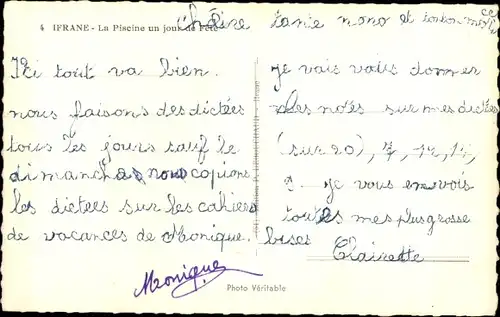 4 IFRANE - La Piscine un jour de Fête
Chère tante nono et tonton
Ici tout va bien.
nous faisons des dictées
tous les jours sauf le
dimanche nous copions
les dictees sur les cahiers
de vacances de Monique.
je vais vous donner
les notes sur mes dictées
(sur 20), 7, 14, 14,
je vous envois
toutes mes plus grosse
bises
Clairette
Monique
Photo Véritable